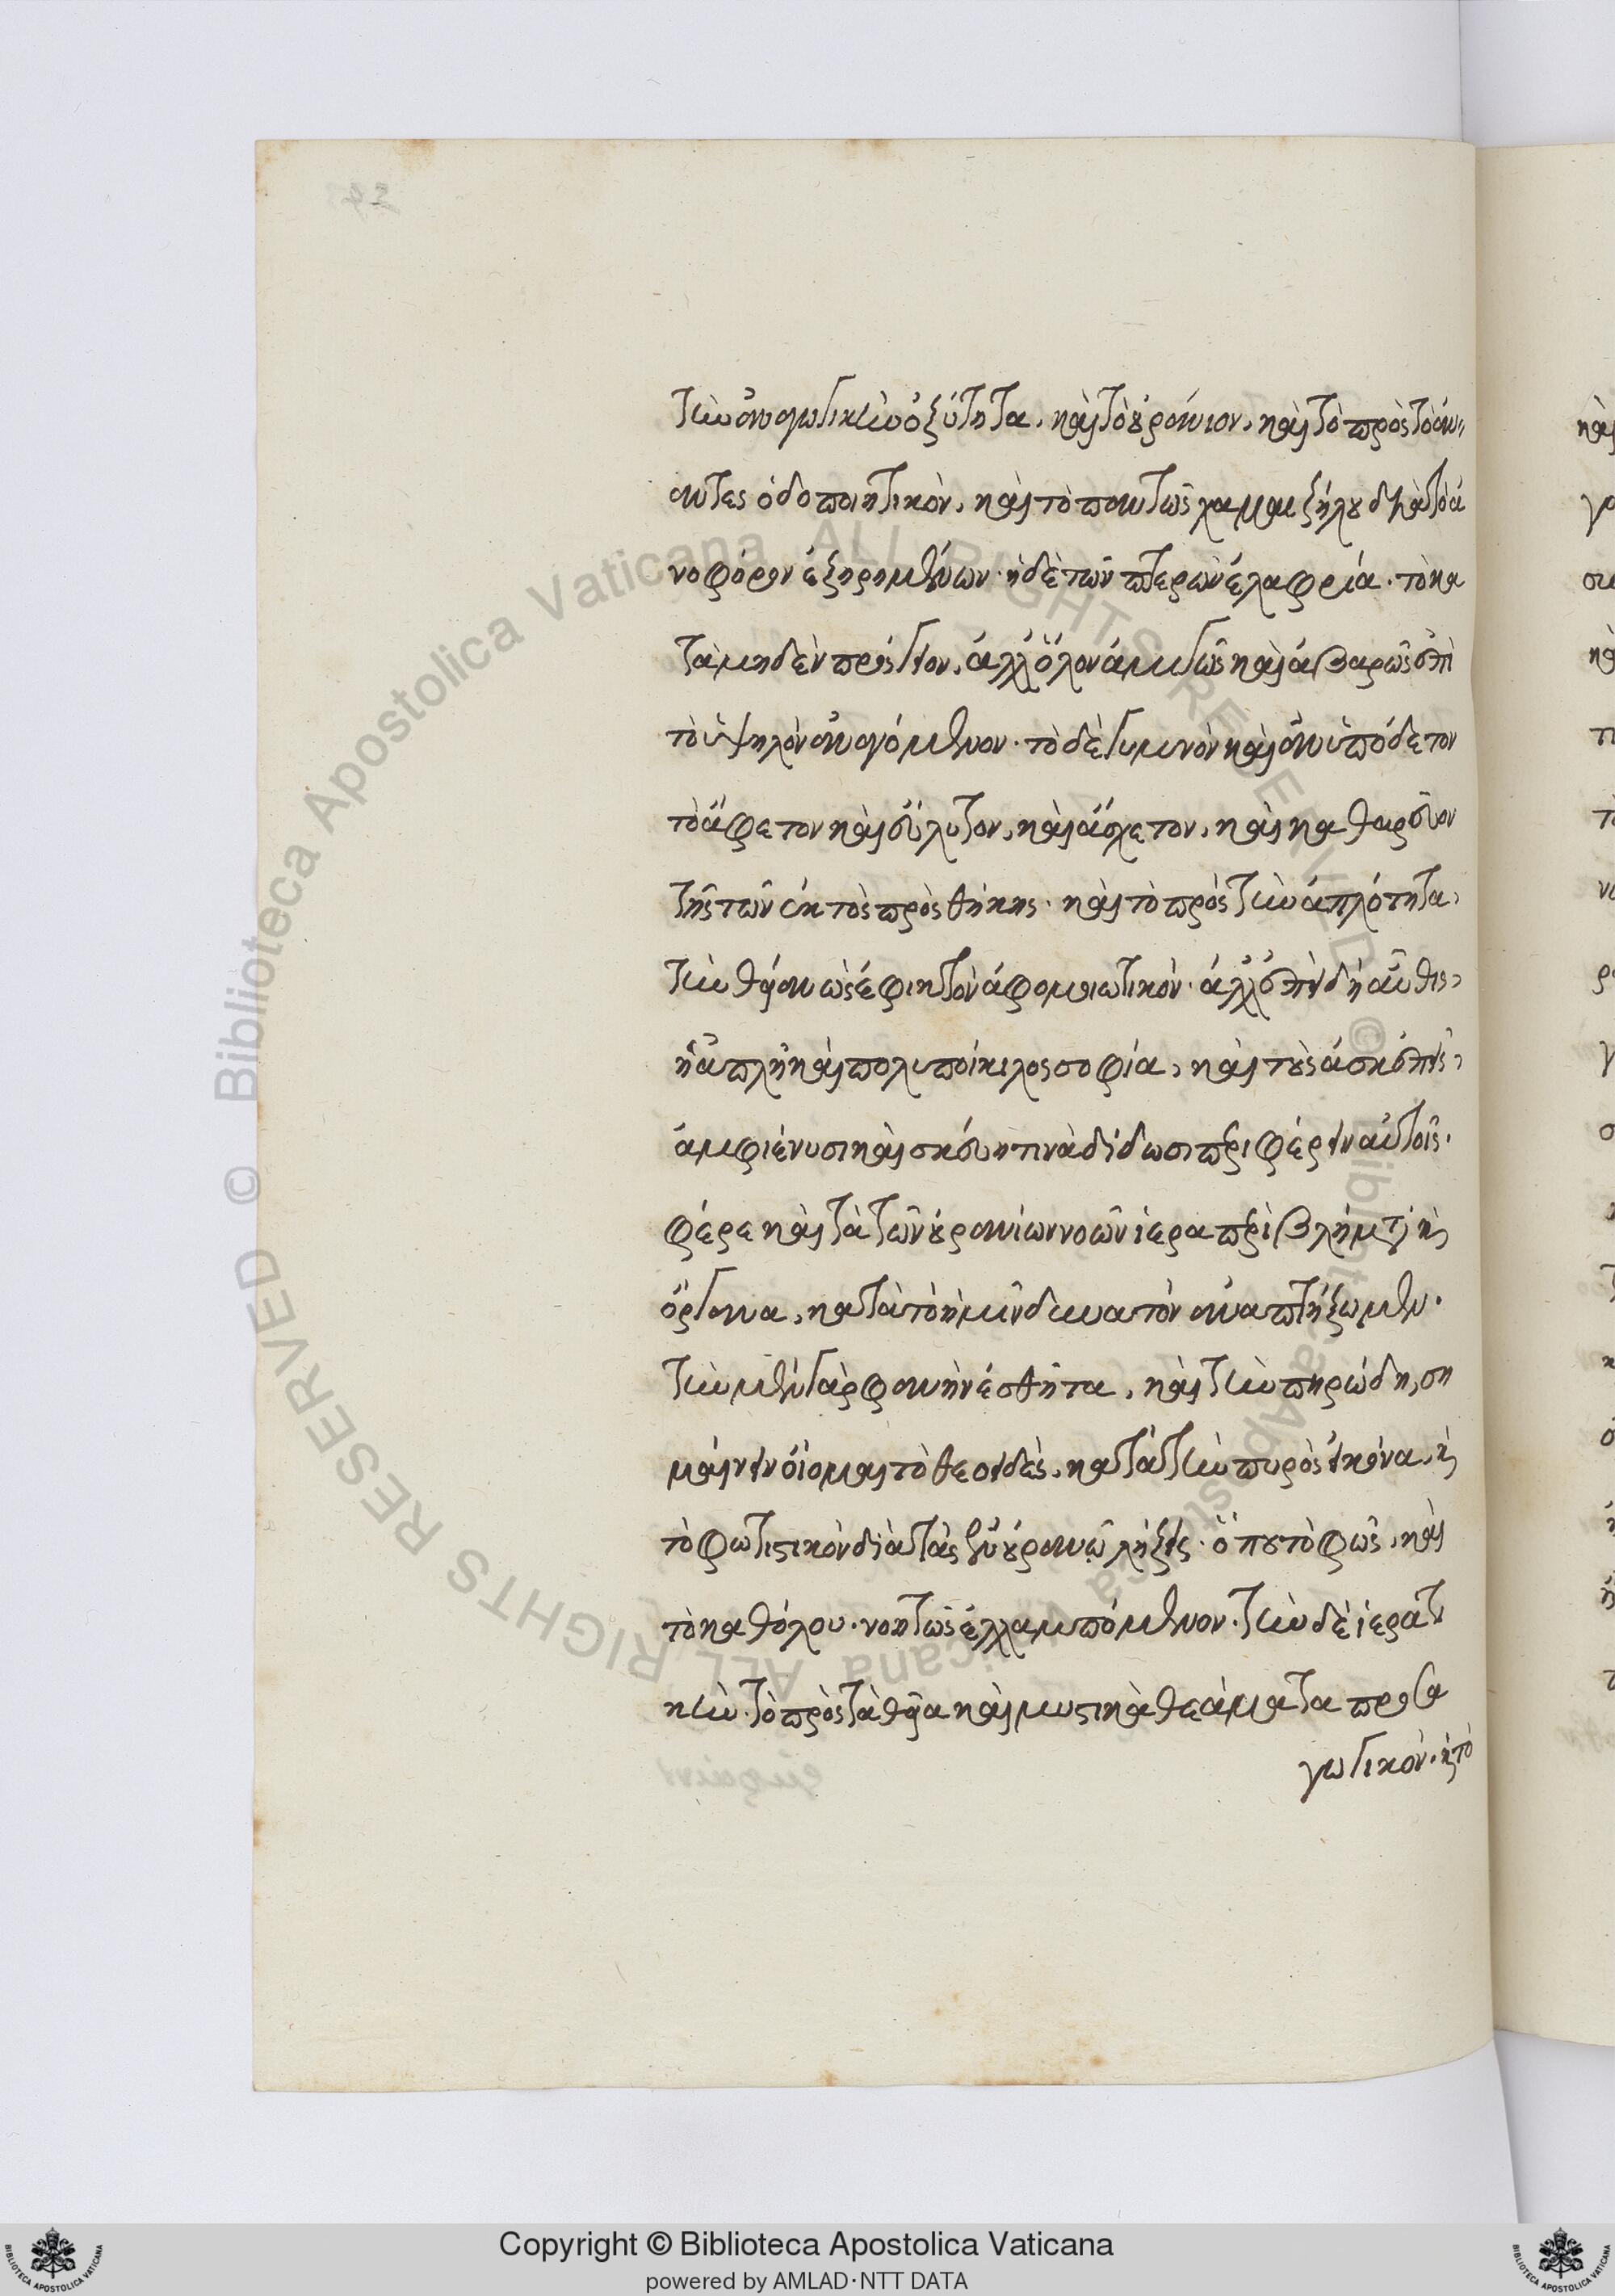 τὴν ἀναγωγικὴν ὀξύτητα, καὶ τὸ οὐράνιον, καὶ τὸ πρὸς τὸ ἄν-
αντες ὁδοποιητικὸν, καὶ τὸ παντὸς χαμαιζήλου διὰ τὸ ἀ
νοφόρον ἐξῃρημένων. ἡ δὲ τῶν πτερῶν ἐλαφρία. τὸ κα
τὰ μηδὲν πρόσγειον, ἀλλ' ὅλον ἀμιγῶς καὶ ἀβαρῶς ἐπὶ
τὸ ὑψηλὸν ἀναγόμενον. τὸ δὲ γυμνὸν καὶ ἀνυπόδετον
τὸ ἄφετον καὶ εὔλυτον, καὶ ἄσχετον, καὶ καθαρεῦον
τῆς τῶν ἐκτὸς προσθήκης. καὶ τὸ πρὸς τὴν ἁπλότητα,
τὴν θείαν ὡς ἐφικτὸν ἀφομοιωτικόν. ἀλλ' ἐπεὶ δὴ αὖθις,
ἡ ἁπλῆ καὶ πολυποίκιλος σοφία, καὶ τοὺς ἀσκεπεῖς,
ἀμφιέννυσι καὶ σκεύη τινὰ δίδωσι περιφέρειν αὐτοῖς.
φέρε καὶ τὰ τῶν οὐρανίων νοῶν ἱερὰ περιβλήματα καὶ
ὄργανα, κατὰ τὸ ἡμῖν δυνατὸν ἀναπτύξωμεν.
τὴν μὲν γὰρ φανὴν ἐσθῆτα, καὶ τὴν πυρώδη, ση
μαίνειν οἴομαι τὸ θεοειδὲς, κατὰ τὴν πυρὸς εἰκόνα, καὶ
τὸ φωτιστικὸν διὰ τὰς ἐν οὐρανῷ λήξεις. ὅπου τὸ φῶς, καὶ
τὸ καθόλου. νοητῶς ἐλλαμπόμενον. τὴν δὲ ἱερατι
κὴν. τὸ πρὸς τὰ θεῖα καὶ μυστικὰ θεάματα προσα
γωγικόν. καὶ τὸ
Copyright © Biblioteca Apostolica Vaticana
powered by AMLAD·NTT DATA